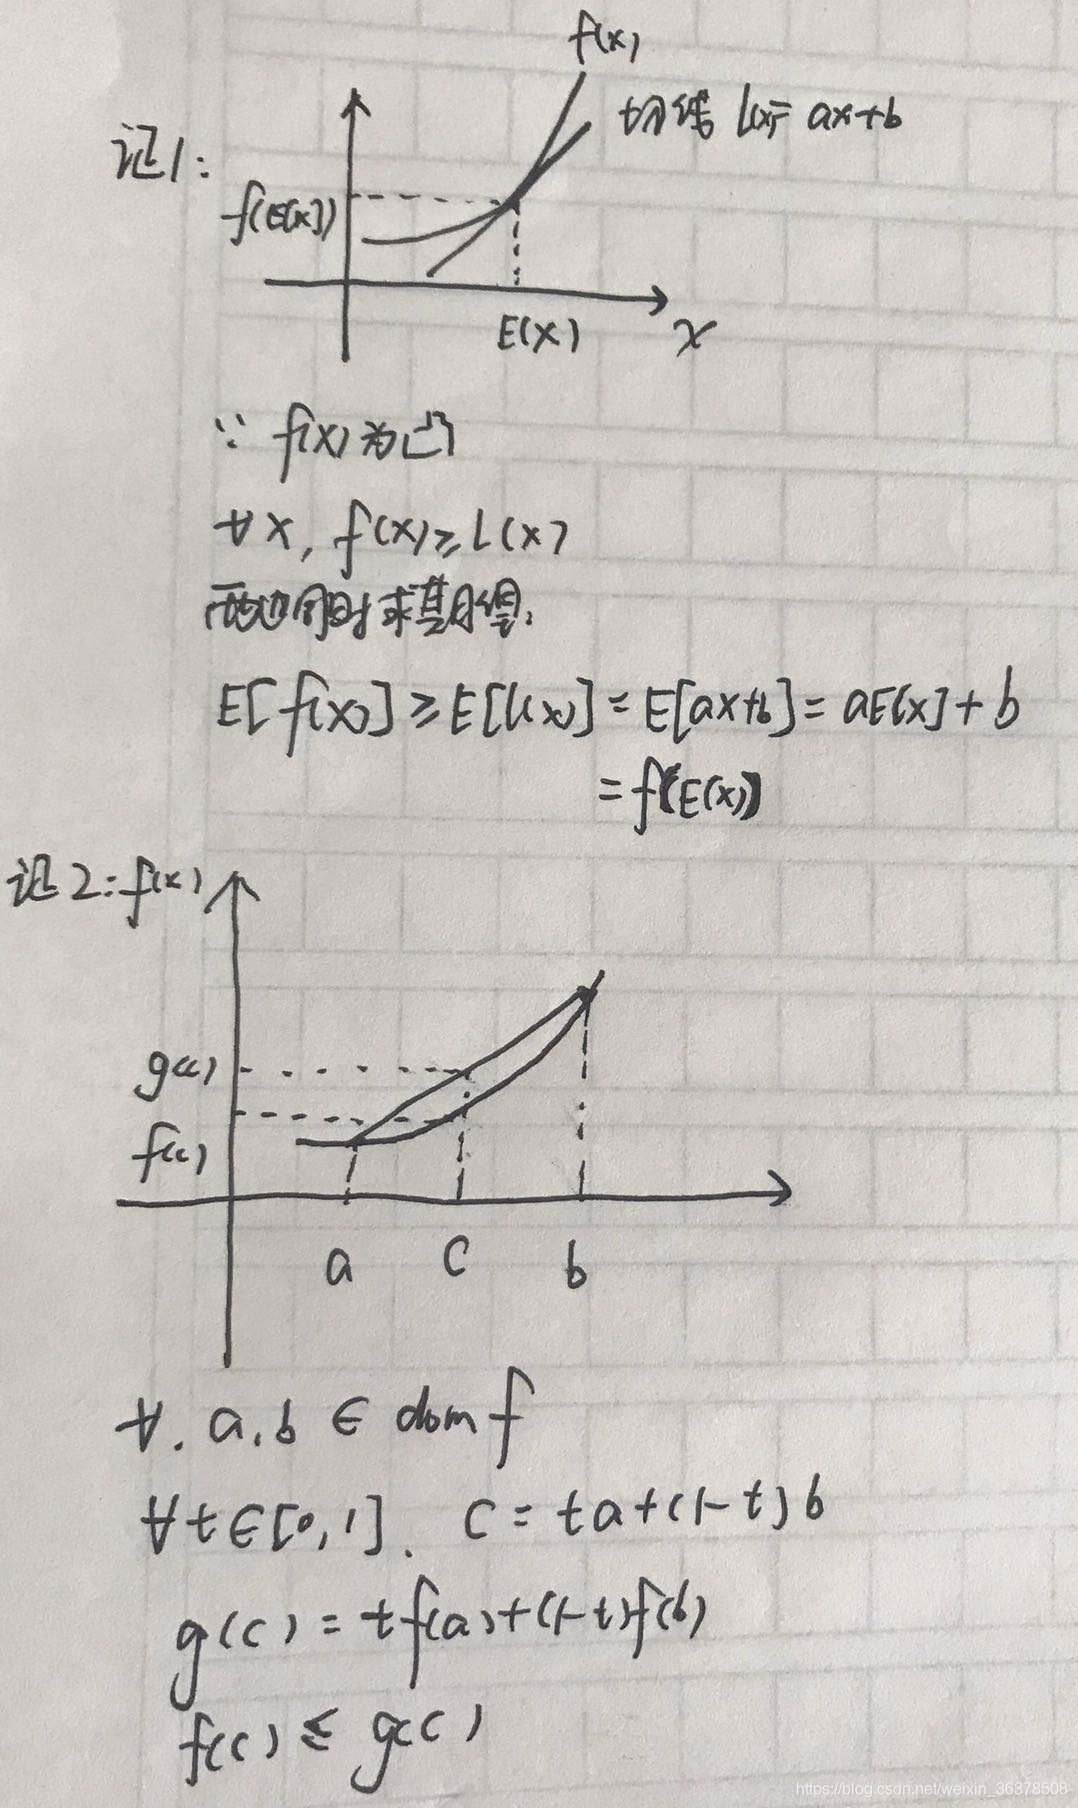 f(x)
切线 L(x)= ax+b
证1:
f(E[x])
E(x)
x
∵ f(x)为凸
∀x, f(x)≥L(x)
两边同时求期望.
E[f(x)]≥E[L(x)]=E[ax+b]=aE[x]+b
=f(E(x))
证2: f(x)
g(c)
f(c)
a c b
∀. a,b ∈ dom f
∀t∈[0,1]. c=ta+(1-t)b
g(c)=tf(a)+(1-t)f(b)
f(c)≤g(c)
https://blog.csdn.net/weixin_36378508